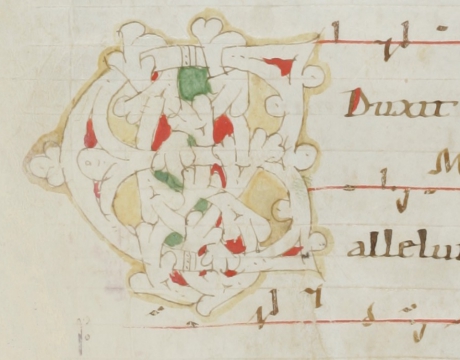 E
Duxit
M
allelu